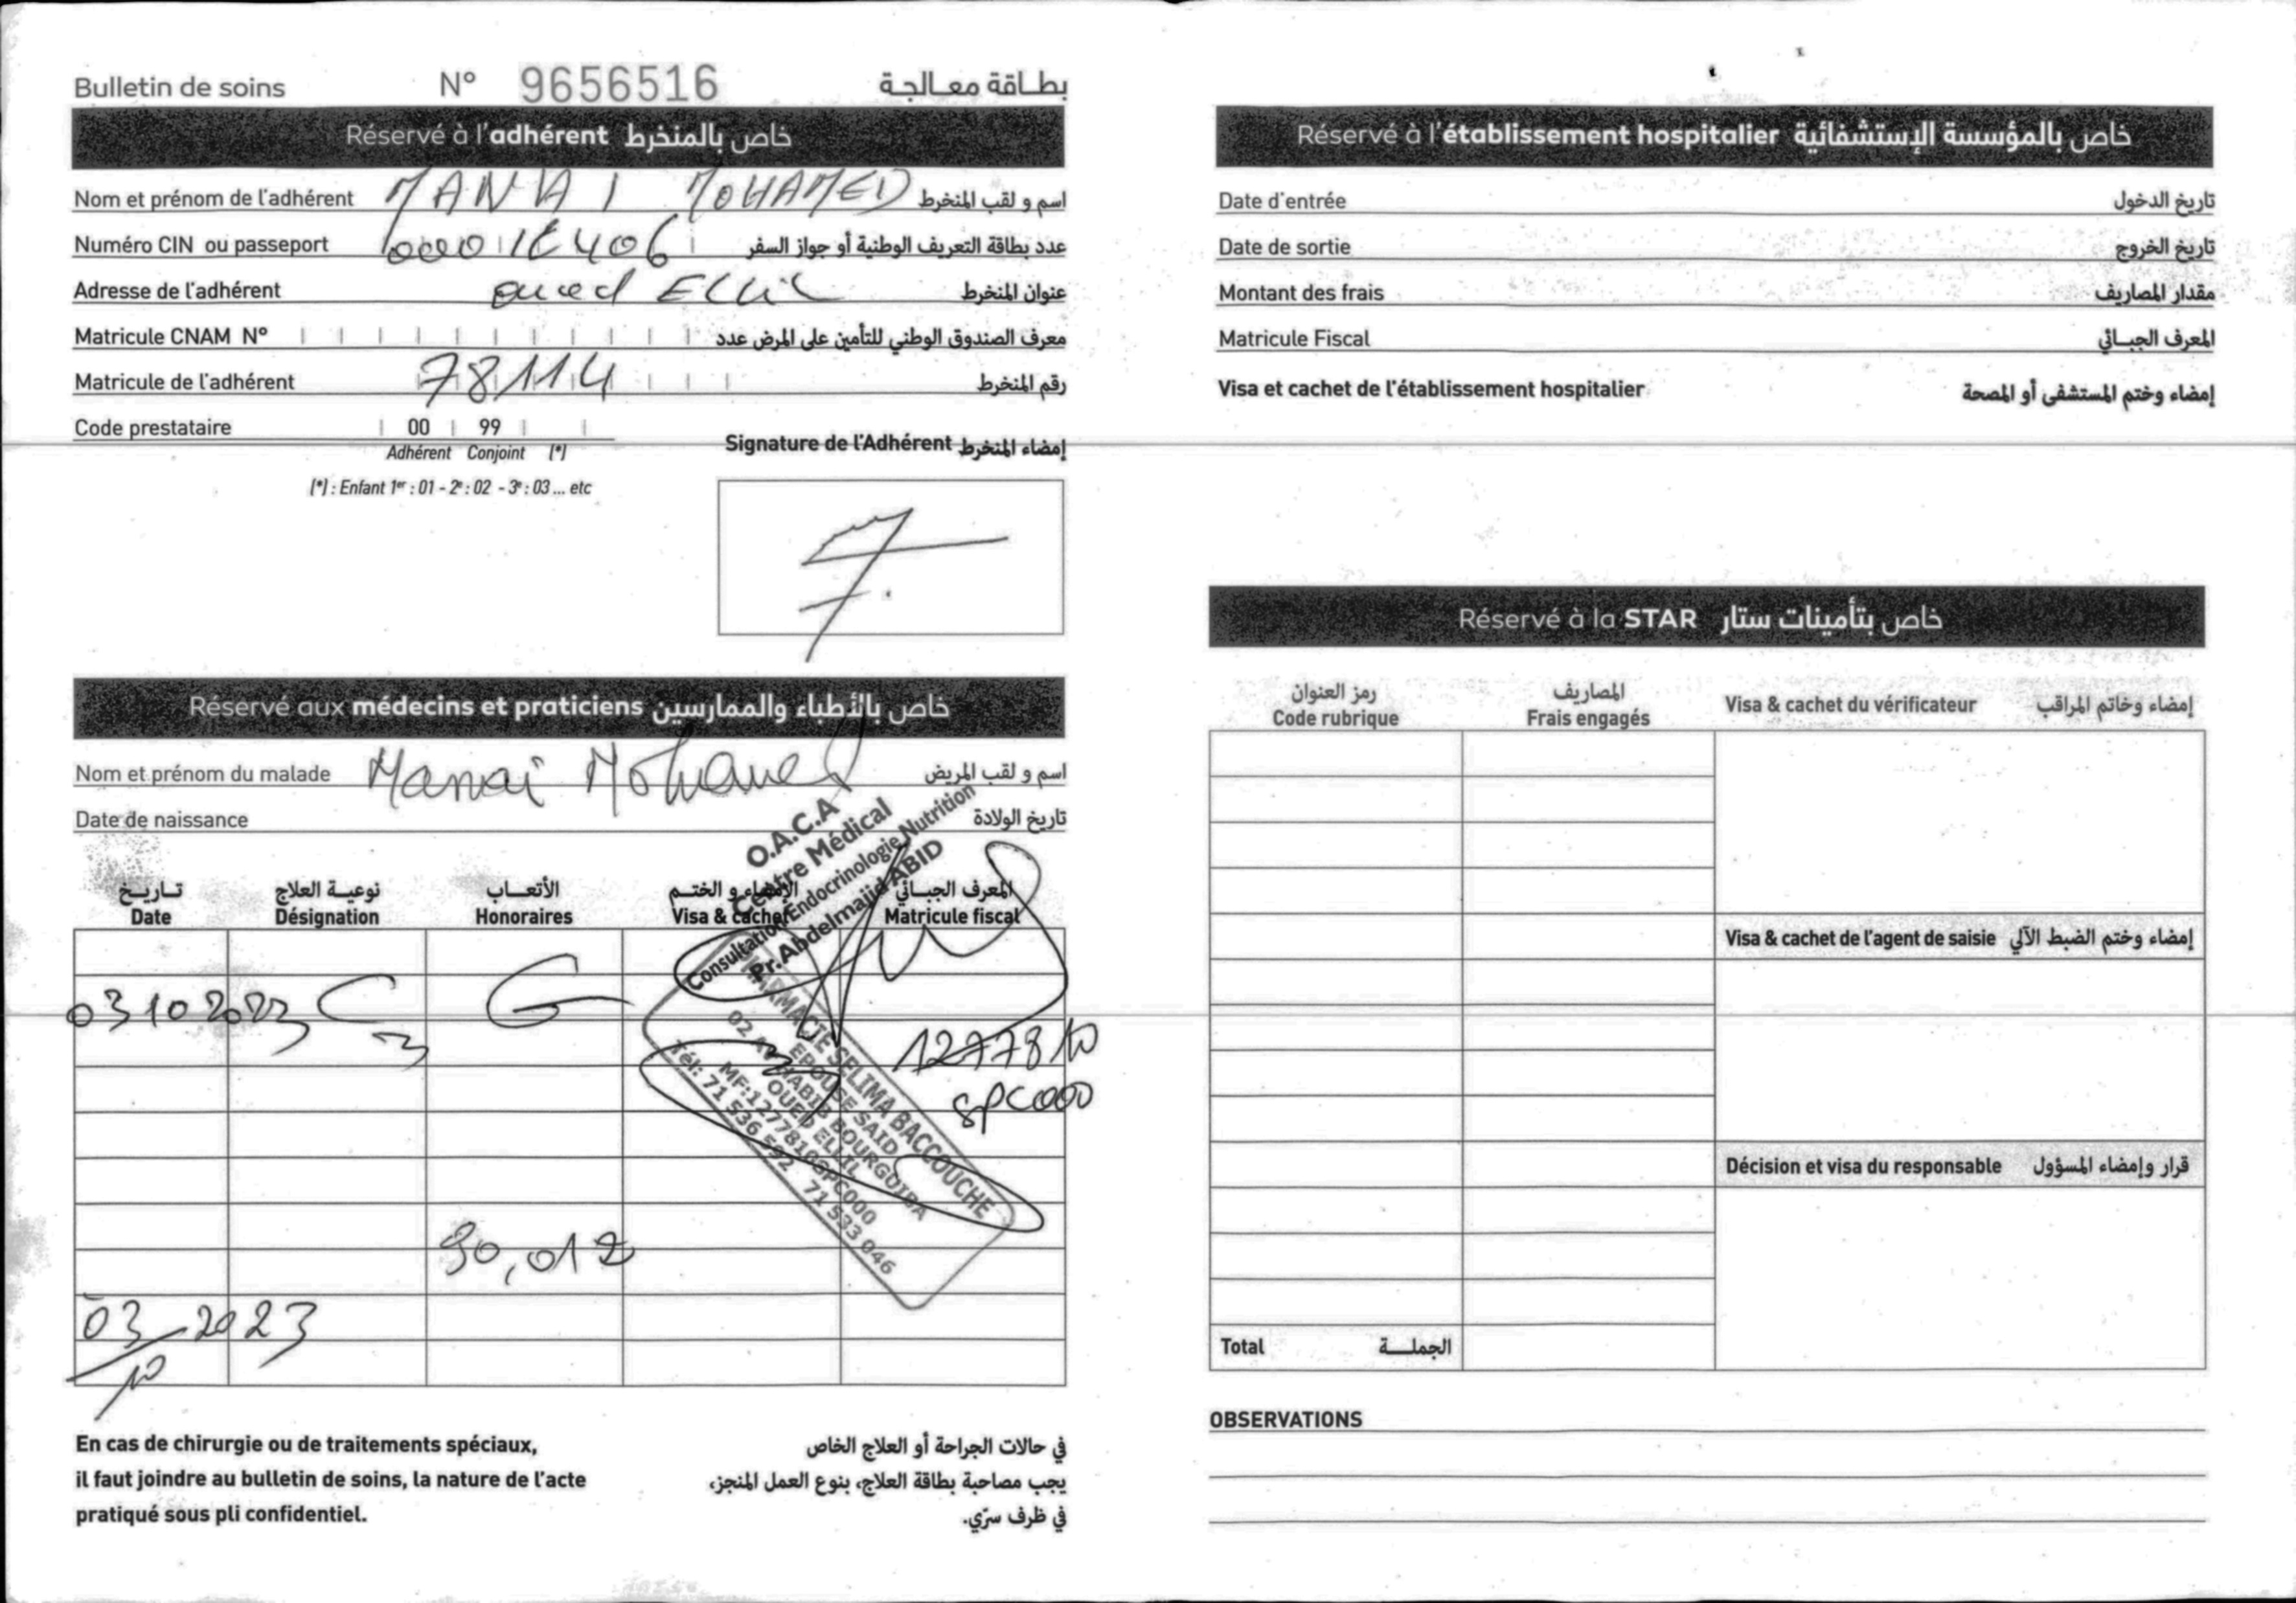 Bulletin de soins N° 9656516 بطاقة معالجة
Réservé à l'adhérent خاص بالمنخرط
Nom et prénom de l'adhérent MANAI MOHAMED اسم و لقب المنخرط
Numéro CIN ou passeport عدد بطاقة التعريف الوطنية أو جواز السفر
Adresse de l'adhérent oued Ellil عنوان المنخرط
Matricule CNAM N° معرف الصندوق الوطني للتأمين على المرض عدد
Matricule de l'adhérent 78114 رقم المنخرط
Code prestataire 00 99
Adhérent Conjoint (*)
(*) : Enfant 1er : 01 - 2e : 02 - 3e : 03 ... etc
Signature de l'Adhérent إمضاء المنخرط
Réservé aux médecins et praticiens خاص بالأطباء والممارسين
Nom et prénom du malade Manai Mohamed اسم و لقب المريض
Date de naissance تاريخ الولادة
O.A.C.A
Centre Médical
Consultation Endocrinologie Nutrition
Pr. Abdelmajid ABID
تاريخ نوعية العلاج الأتعاب الإمضاء و الختم المعرف الجبائي
Date Désignation Honoraires Visa & cachet Matricule fiscal
03 10 2023 C3 G
PHARMACIE SELIMA BACCOUCHE
EPOUSE SAID
02 AV HABIB BOURGUIBA
OUED ELLIL
MF:1277810GPC000
Tél: 71 536 592 71 533 046
1277810
GPC000
90,012
03/10 2023
En cas de chirurgie ou de traitements spéciaux,
il faut joindre au bulletin de soins, la nature de l'acte
pratiqué sous pli confidentiel.
في حالات الجراحة أو العلاج الخاص
يجب مصاحبة بطاقة العلاج، بنوع العمل المنجز،
في ظرف سرّي.
Réservé à l'établissement hospitalier خاص بالمؤسسة الإستشفائية
Date d'entrée تاريخ الدخول
Date de sortie تاريخ الخروج
Montant des frais مقدار المصاريف
Matricule Fiscal المعرف الجبائي
Visa et cachet de l'établissement hospitalier إمضاء وختم المستشفى أو المصحة
Réservé à la STAR خاص بتأمينات ستار
رمز العنوان المصاريف
Code rubrique Frais engagés Visa & cachet du vérificateur إمضاء وخاتم المراقب
Visa & cachet de l'agent de saisie إمضاء وختم الضبط الآلي
Décision et visa du responsable قرار وإمضاء المسؤول
Total الجملة
OBSERVATIONS